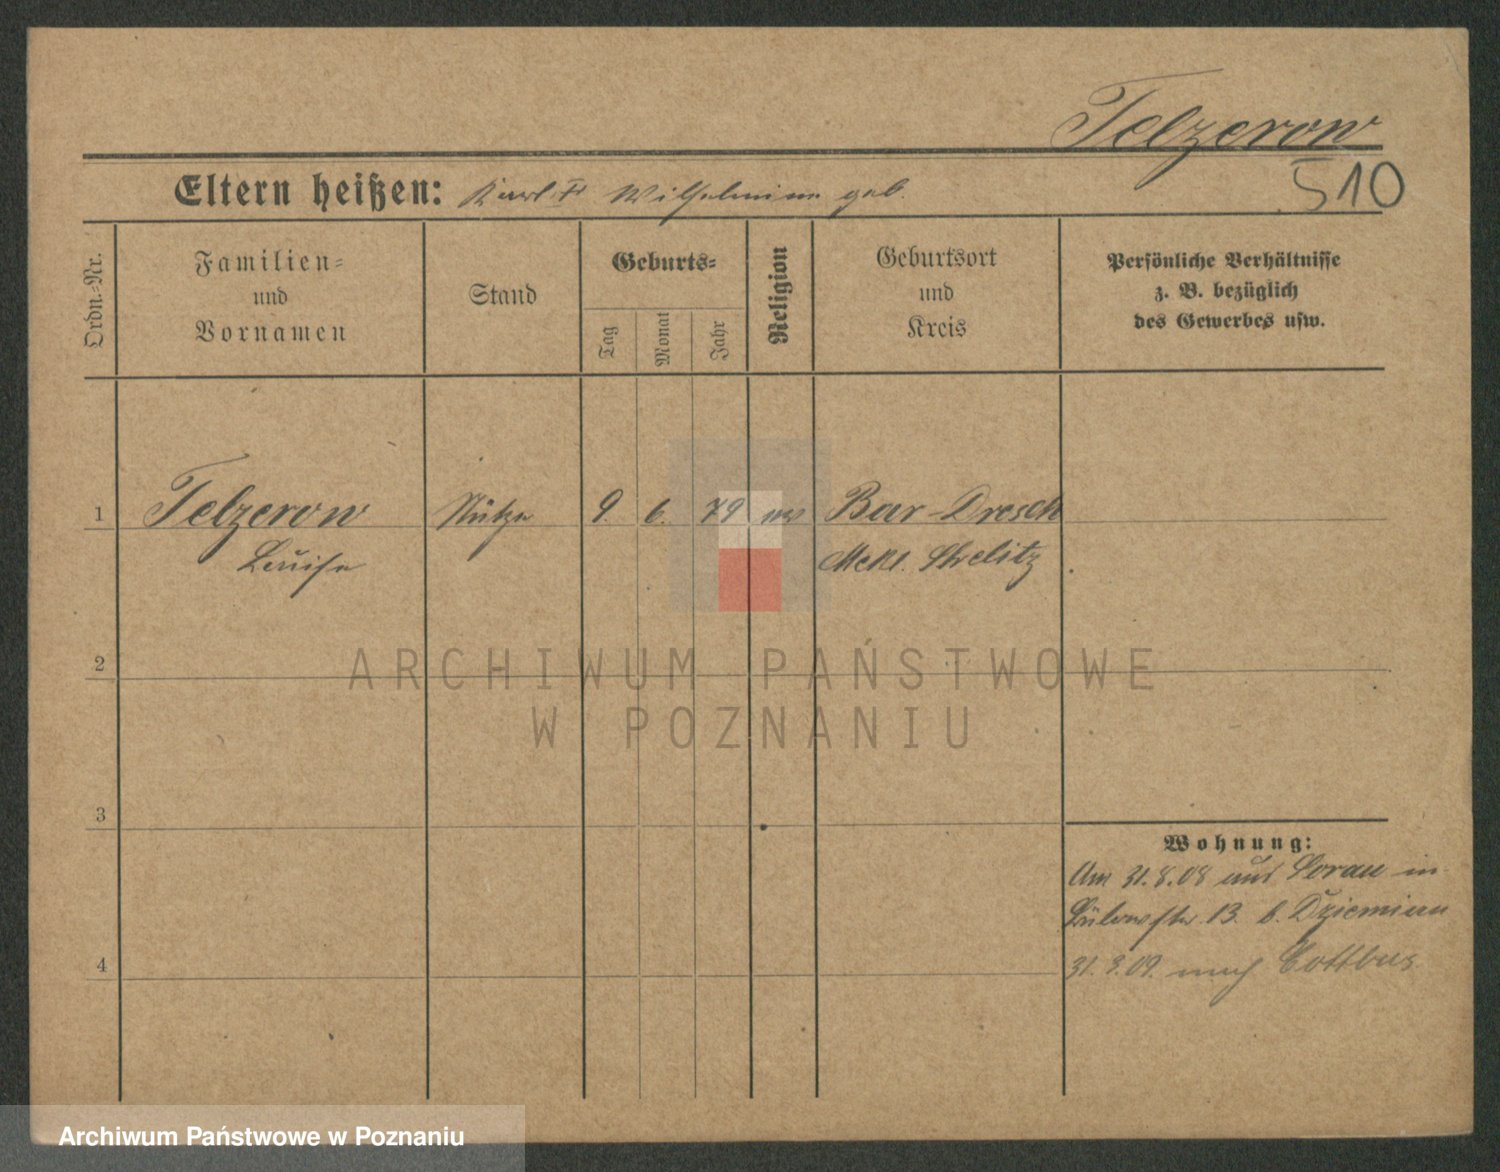 Telzerow
510
Eltern heißen: Karl Wilhelmine geb.
Ordn.-Nr.
Familien-
und
Vornamen
Stand
Geburts-
Tag
Monat
Jahr
Religion
Geburtsort
und
Kreis
Persönliche Verhältnisse
z. B. bezüglich
des Gewerbes usw.
1 Telzerow Stütze 9. 6. 79 ev Bar-Dresch
Luise Meckl. Strelitz
2
ARCHIWUM PAŃSTWOWE
W POZNANIU
3
Wohnung:
Am 31.8.08 aus Sorau in
Bülowstr. 13. b. Dziemian
4
31.3.09. nach Cottbus
Archiwum Państwowe w Poznaniu